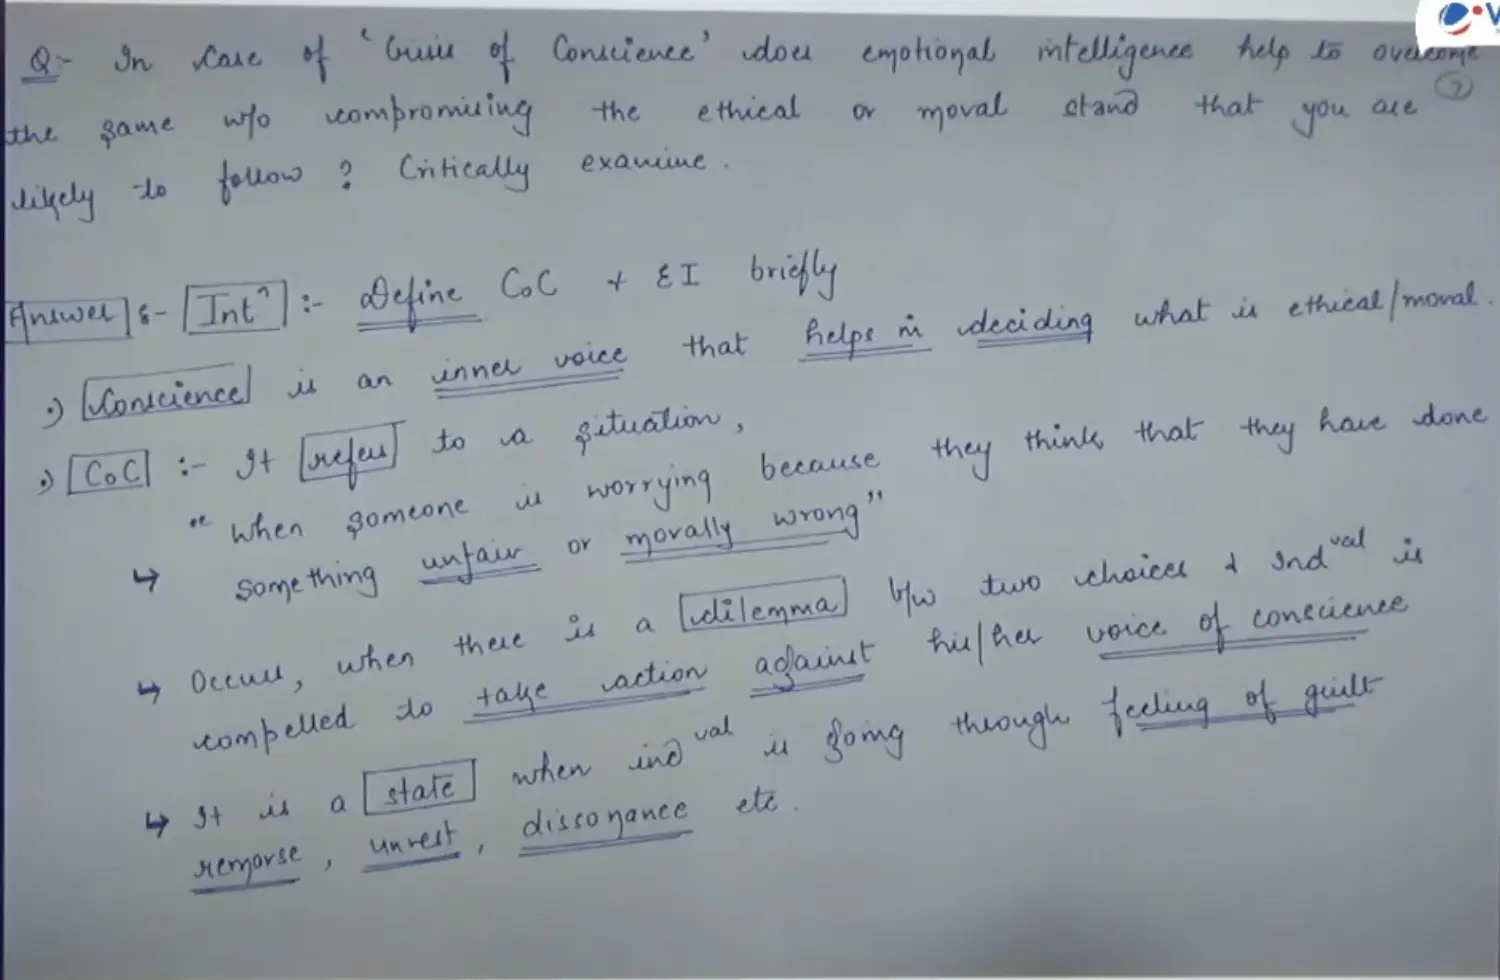 Q:- In case of 'Crisis of Conscience' does emotional intelligence help to overcome
the same w/o compromising the ethical or moral stand that you are
likely to follow ? Critically examine .
Answer :- Intⁿ :- Define CoC + EI briefly
.) Conscience is an inner voice that helps in deciding what is ethical/moral .
.) CoC :- It refers to a situation ,
" when someone is worrying because they think that they have done
↳ something unfair or morally wrong "
↳ Occurs, when there is a dilemma b/w two choices & Indval is
compelled to take action against his/her voice of conscience
↳ It is a state when indval is going through feeling of guilt
remorse , unrest , dissonance etc .